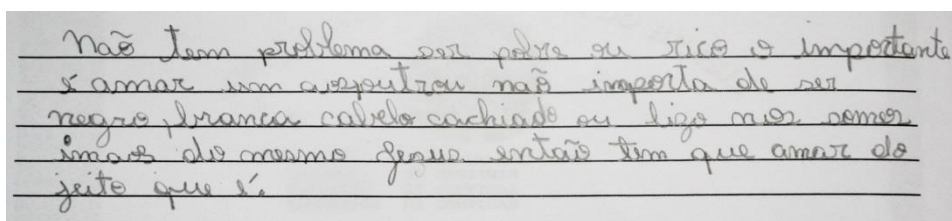 não tem problema ser pobre ou rico o importante
é amar um aospoutrou não importa de ser
negro, branca cabelo cachiado ou lizo nos somos
imaos do mesmo Jesus então tem que amar do
jeito que é.